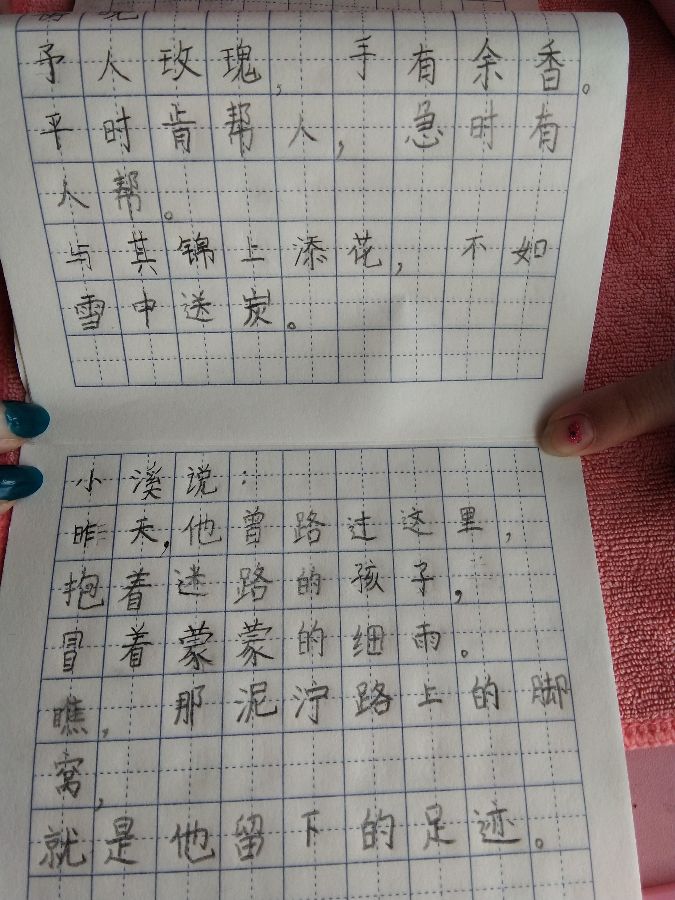 予人玫瑰，手有余香。
平时肯帮人，急时有
人帮。
与其锦上添花，不如
雪中送炭。
小溪说：
昨天，他曾路过这里，
抱着迷路的孩子，
冒着蒙蒙的细雨。
瞧，那泥泞路上的脚
窝，
就是他留下的足迹。